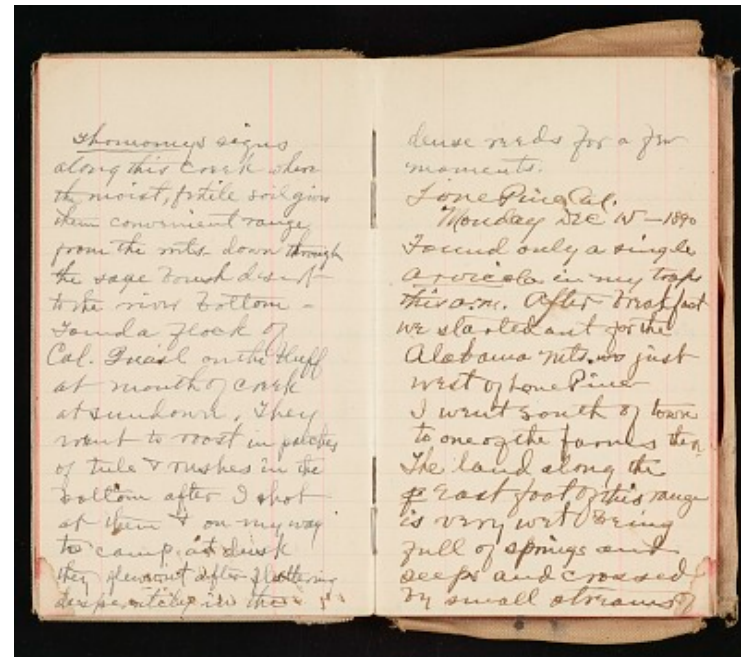 Thomomys signs
along this creek where
the moist, fertile soil gives
them convenient range
from the mts. down through
the sage brush desert
to the river bottom -
Found a flock of
Cal. Quail on the bluff
at mouth of creek
at sundown. They
went to roost in patches
of tule & rushes in the
bottom after I shot
at them & on my way
to camp at dusk
they flew out after fluttering
desperately in the
dense reeds for a few
moments.
Lone Pine Cal.
Monday Dec 15 - 1890
Found only a single
arvicola in my traps
this a.m. After breakfast
we started out for the
Alabama mts. just
west of Lone Pine
I went south of town
to one of the farms there
The land along the
east foot of this range
is very wet being
full of springs and
seeps and crossed
by small streams of